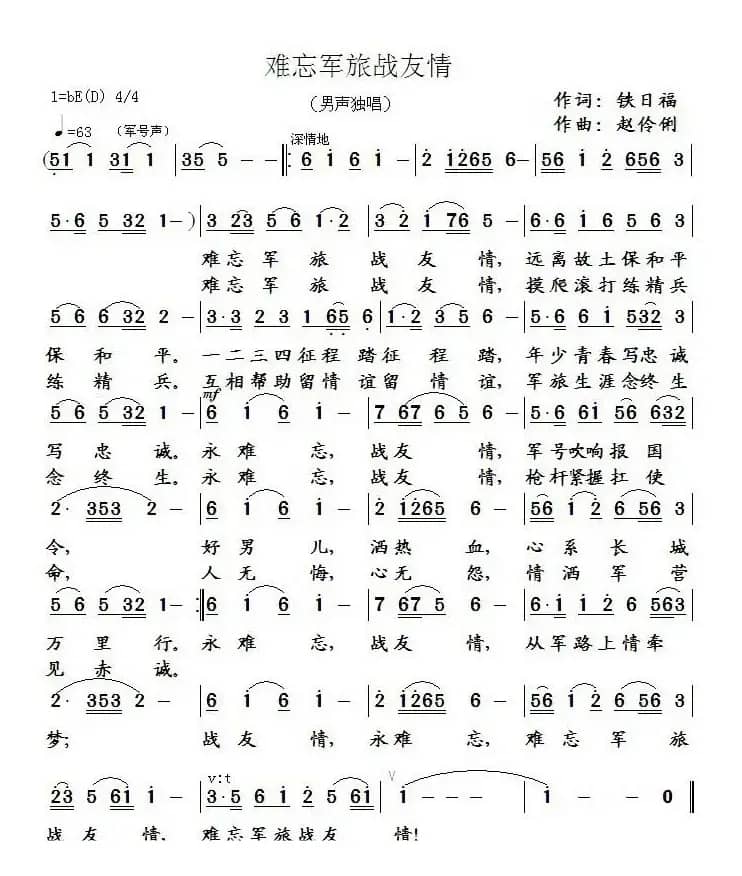 难忘军旅战友情
1=bE(D) 4/4
（男声独唱）
作词：铁日福
♩=63 （军号声）
作曲：赵伶俐
深情地
(51 1 31 1 | 35 5 - - ‖: 6 i 6 i - | 2 i265 6 - | 56 i 2 656 3 |
5·6 5 32 1 - ) | 3 23 5 6 1·2 | 3 2 i 76 5 - | 6·6 i 6 5 6 5 |
难忘军旅战友情，远离故土保和平
难忘军旅战友情，摸爬滚打练精兵
5 6 6 32 2 - | 3·3 2 3 1 65 6 | i·2 3 5 6 - | 5·6 5 3 2 1 2 3 |
保和平。一二三四征程踏征程踏，年少青春写忠诚
练精兵。互相帮助留情谊留情谊，军旅生涯念终生
mf
5 6 5 32 1 - | 6 i 6 i - | 7 67 6 5 6 - | 5·6 6i 56 632 |
写忠诚。永难忘，战友情，军号吹响报国
念终生。永难忘，战友情，枪杆紧握扛使
2· 353 2 - | 6 i 6 i - | 2 i265 6 - | 56 i 2 6 56 3 |
令，好男儿，洒热血，心系长城
命，人无悔，心无怨，情洒军营
5 6 5 32 1 - :‖ 6 i 6 i - | 7 67 5 6 - | 6·i i 2 6 563 |
万里行。永难忘，战友情，从军路上情牵
见赤诚。
2· 353 2 - | 6 i 6 i - | 2 i265 6 - | 56 i 2 6 56 3 |
梦；战友情，永难忘，难忘军旅
v:t
V
23 5 6i i - | 3·5 6 i 2 5 6i | i - - - | i - - 0 ‖
战友情，难忘军旅战友情！